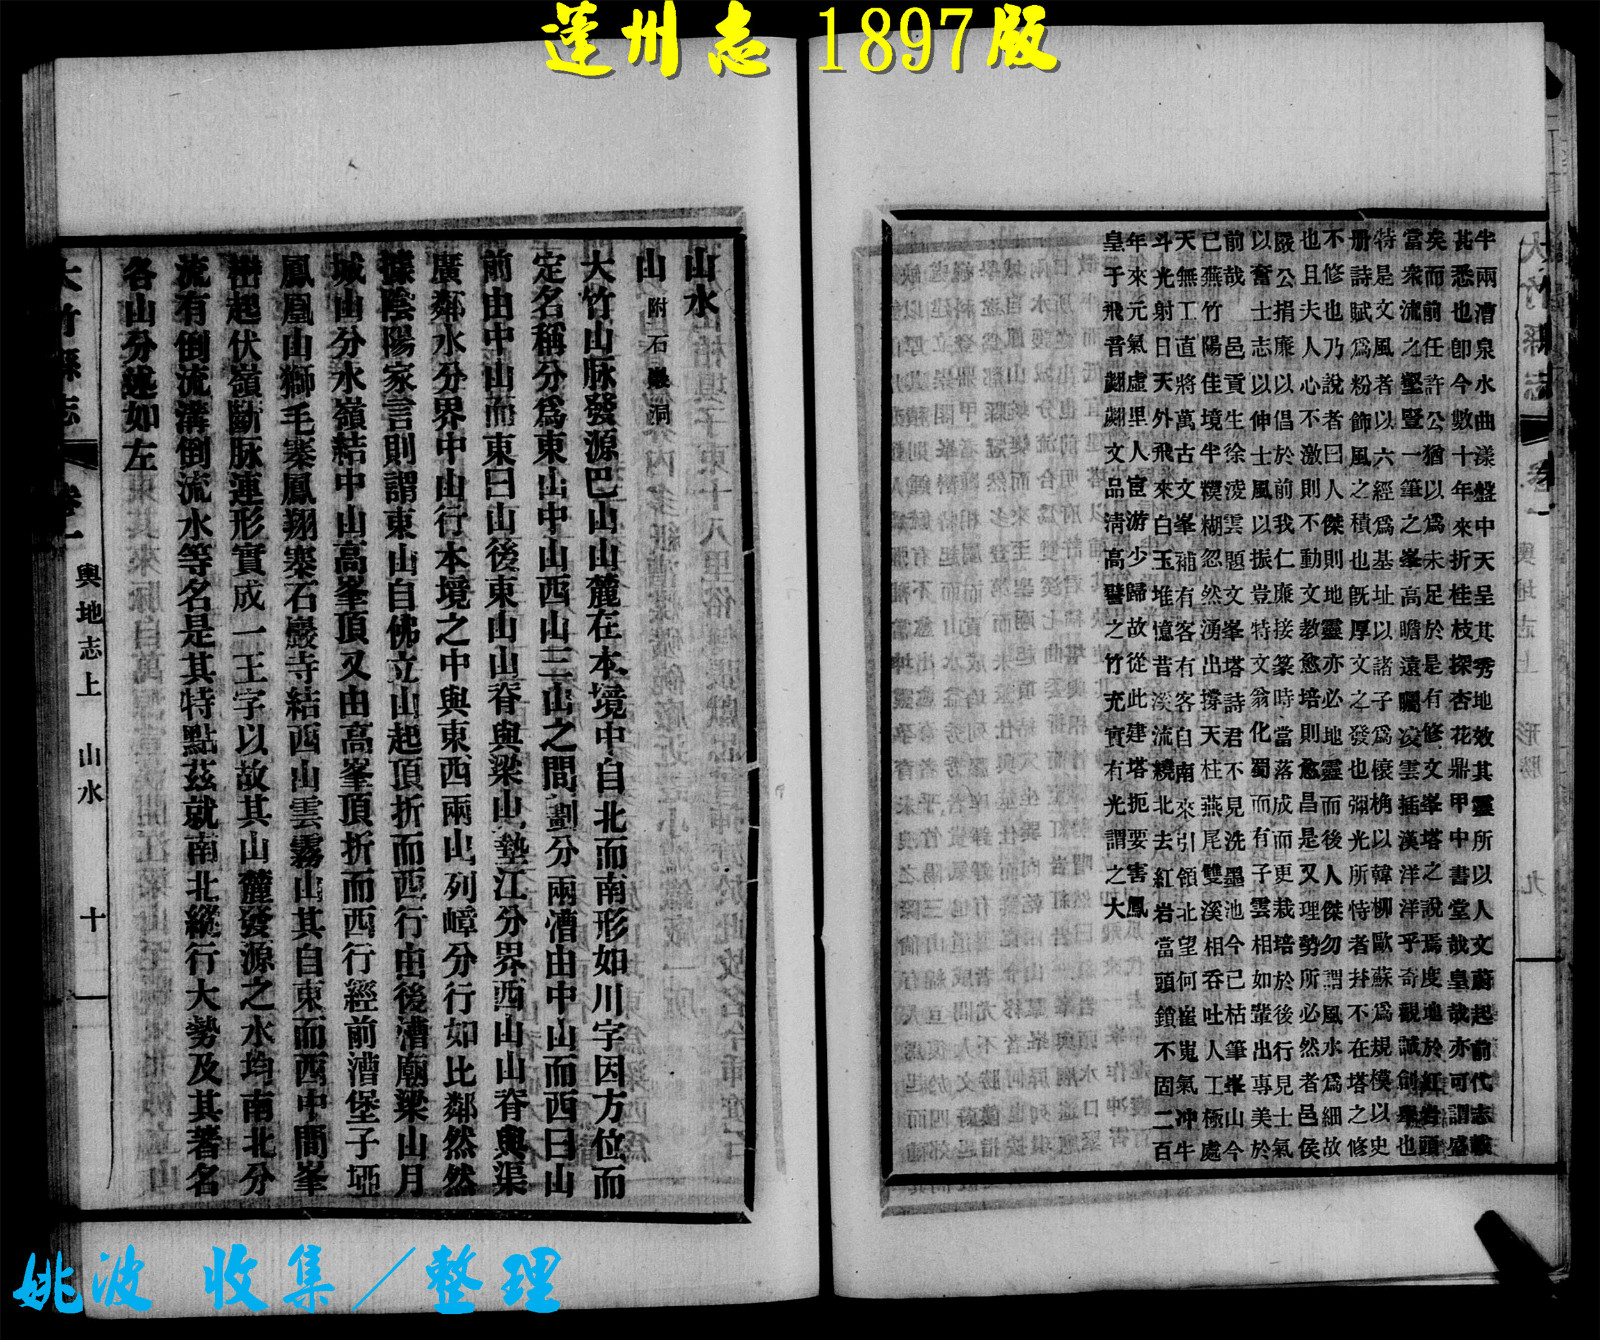 蓬州志 1897版
半兩漕泉水曲漾盤中天呈其秀地效其靈所以人文蔚起前代志載
甚悉也卽今數十年來折桂枝探杏花鼎甲中書堂哉皇哉亦可謂盛
矣而前任許公猶以爲未足於是有修文峯塔之說焉度地於紅岩頭
當衆流之壑豎一筆之峯高瞻遠矚凌雲插漢洋洋乎奇觀誠創舉也
特是文風者以六經爲基址以諸子爲榱桷以韓柳歐蘇爲規模以史
册詩賦爲粉飾風之積也旣厚文之發也彌光所恃者幷不在塔之修
不修也乃說者曰人傑則地靈亦必地靈而後人傑勿謂風水爲細故
也且夫人心不激則不動文教愈培則愈昌是又理勢所必然者邑侯
嚴公捐廉以倡於前我仁廉接篆時當落成而更栽培於後行見士氣
以奮士志以伸士風以振豈特文翁化蜀而有子雲相如輩出專美於
前哉 邑貢生徐淩雲題文峯塔詩君不見洗墨池今已枯筆峯山今
已燕竹陽佳境半糢糊忽然湧出撐天柱燕尾雙溪相吞吐人工極處
天無工直將萬古文峯補有客有客自南來引領北望何崔嵬氣冲牛
斗光射日天外飛來白玉堆憶昔淡流繞北去紅岩當頭鎖不固二百
年來元氣虛里人宦游少歸故從此建塔扼要害鳳
皇于飛音翽翽文品淸高譬之竹充實有光謂之大
大竹縣志
卷一
輿地志上 形勝
九
山水
山 附石巖洞
大竹山脉發源巴山山麓在本境中自北而南形如川字因方位而
定名稱分爲東山中山西山三山之間劃分兩漕由中山而西曰山
前由中山而東曰山後東山山脊與梁山墊江分界西山山脊與渠
廣鄰水分界中山行本境之中與東西兩山列嶂分行如比鄰然然
據陰陽家言則謂東山自佛立山起頂折而西行由後漕廟梁山月
城山分水嶺結中山高峯頂又由高峯頂折而西行經前漕堡子埡
鳳凰山獅毛寨鳳翔寨石巖寺結西山雲霧山其自東而西中間峯
巒起伏嶺斷脉連形實成一王字以故其山麓發源之水均南北分
流有倒流溝倒流水等名是其特點茲就南北縱行大勢及其著名
各山分述如左
大竹縣志
卷一
輿地志上 山水
十
姚波 收集／整理